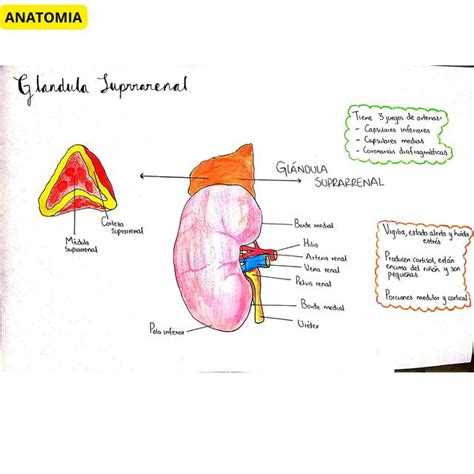 ANATOMIA
Glandula Suprarenal
Tiene 3 juegos de arterias:
- Capsulares inferiores
- Capsulares medias
- Coronarias diafragmáticas
GLÁNDULA
SUPRARRENAL
Corteza
Suprarenal
Médula
Suprarenal
Borde medial
Hilio
Arteria renal
Vena renal
Pelvis renal
Borde medial
Uréter
Polo inferior
Vigilia, estado alerta y huida
estrés
Producen cortisol, están
encima del riñón y son
pequeñas
Porciones medular y cortical